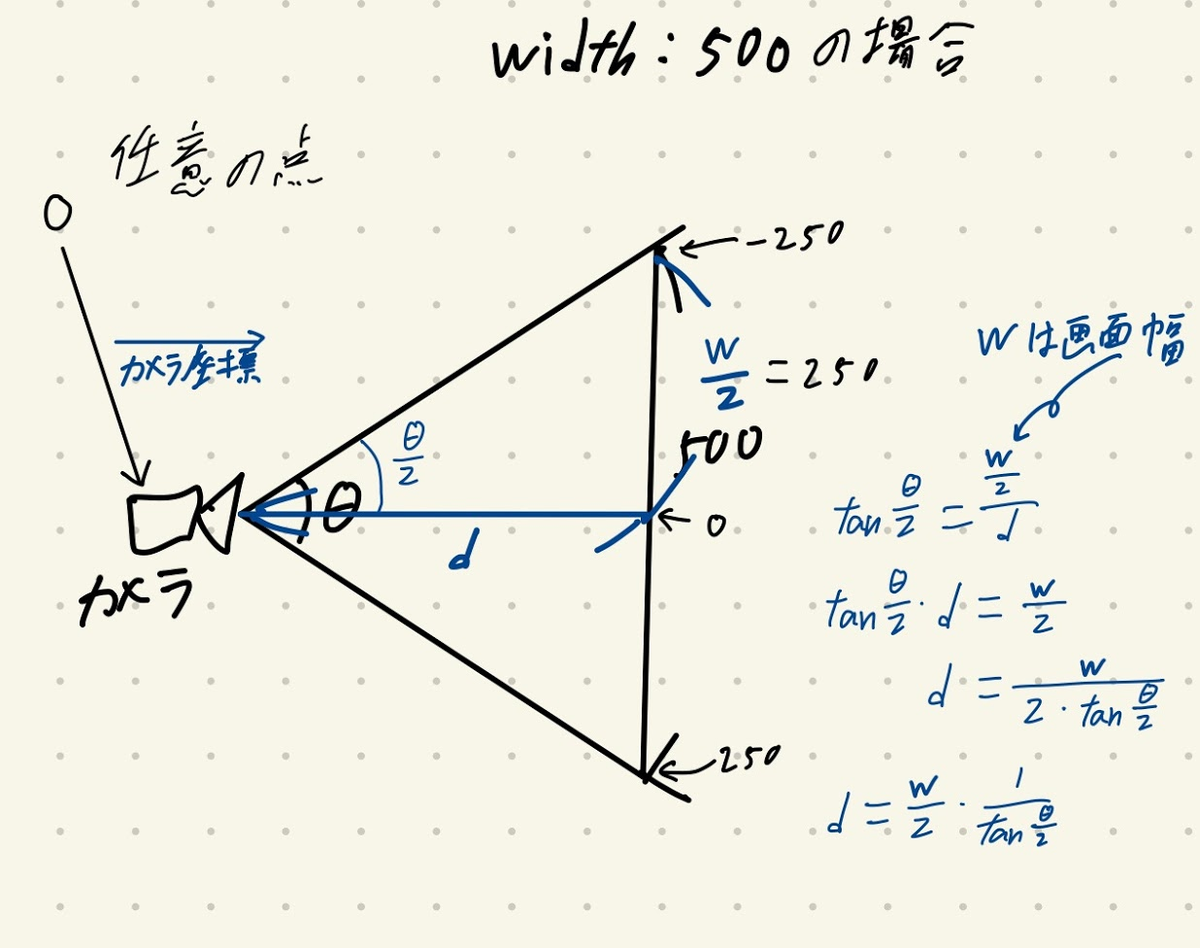 width : 500 の場合
任意の点
O
カメラ座標
カメラ
θ
θ/2
d
← -250
w/2 = 250
500
← 0
← 250
Wは画面幅
tan θ/2 = w/2 / d
tan θ/2 · d = w/2
d = w / 2 · tan θ/2
d = w/2 · 1 / tan θ/2